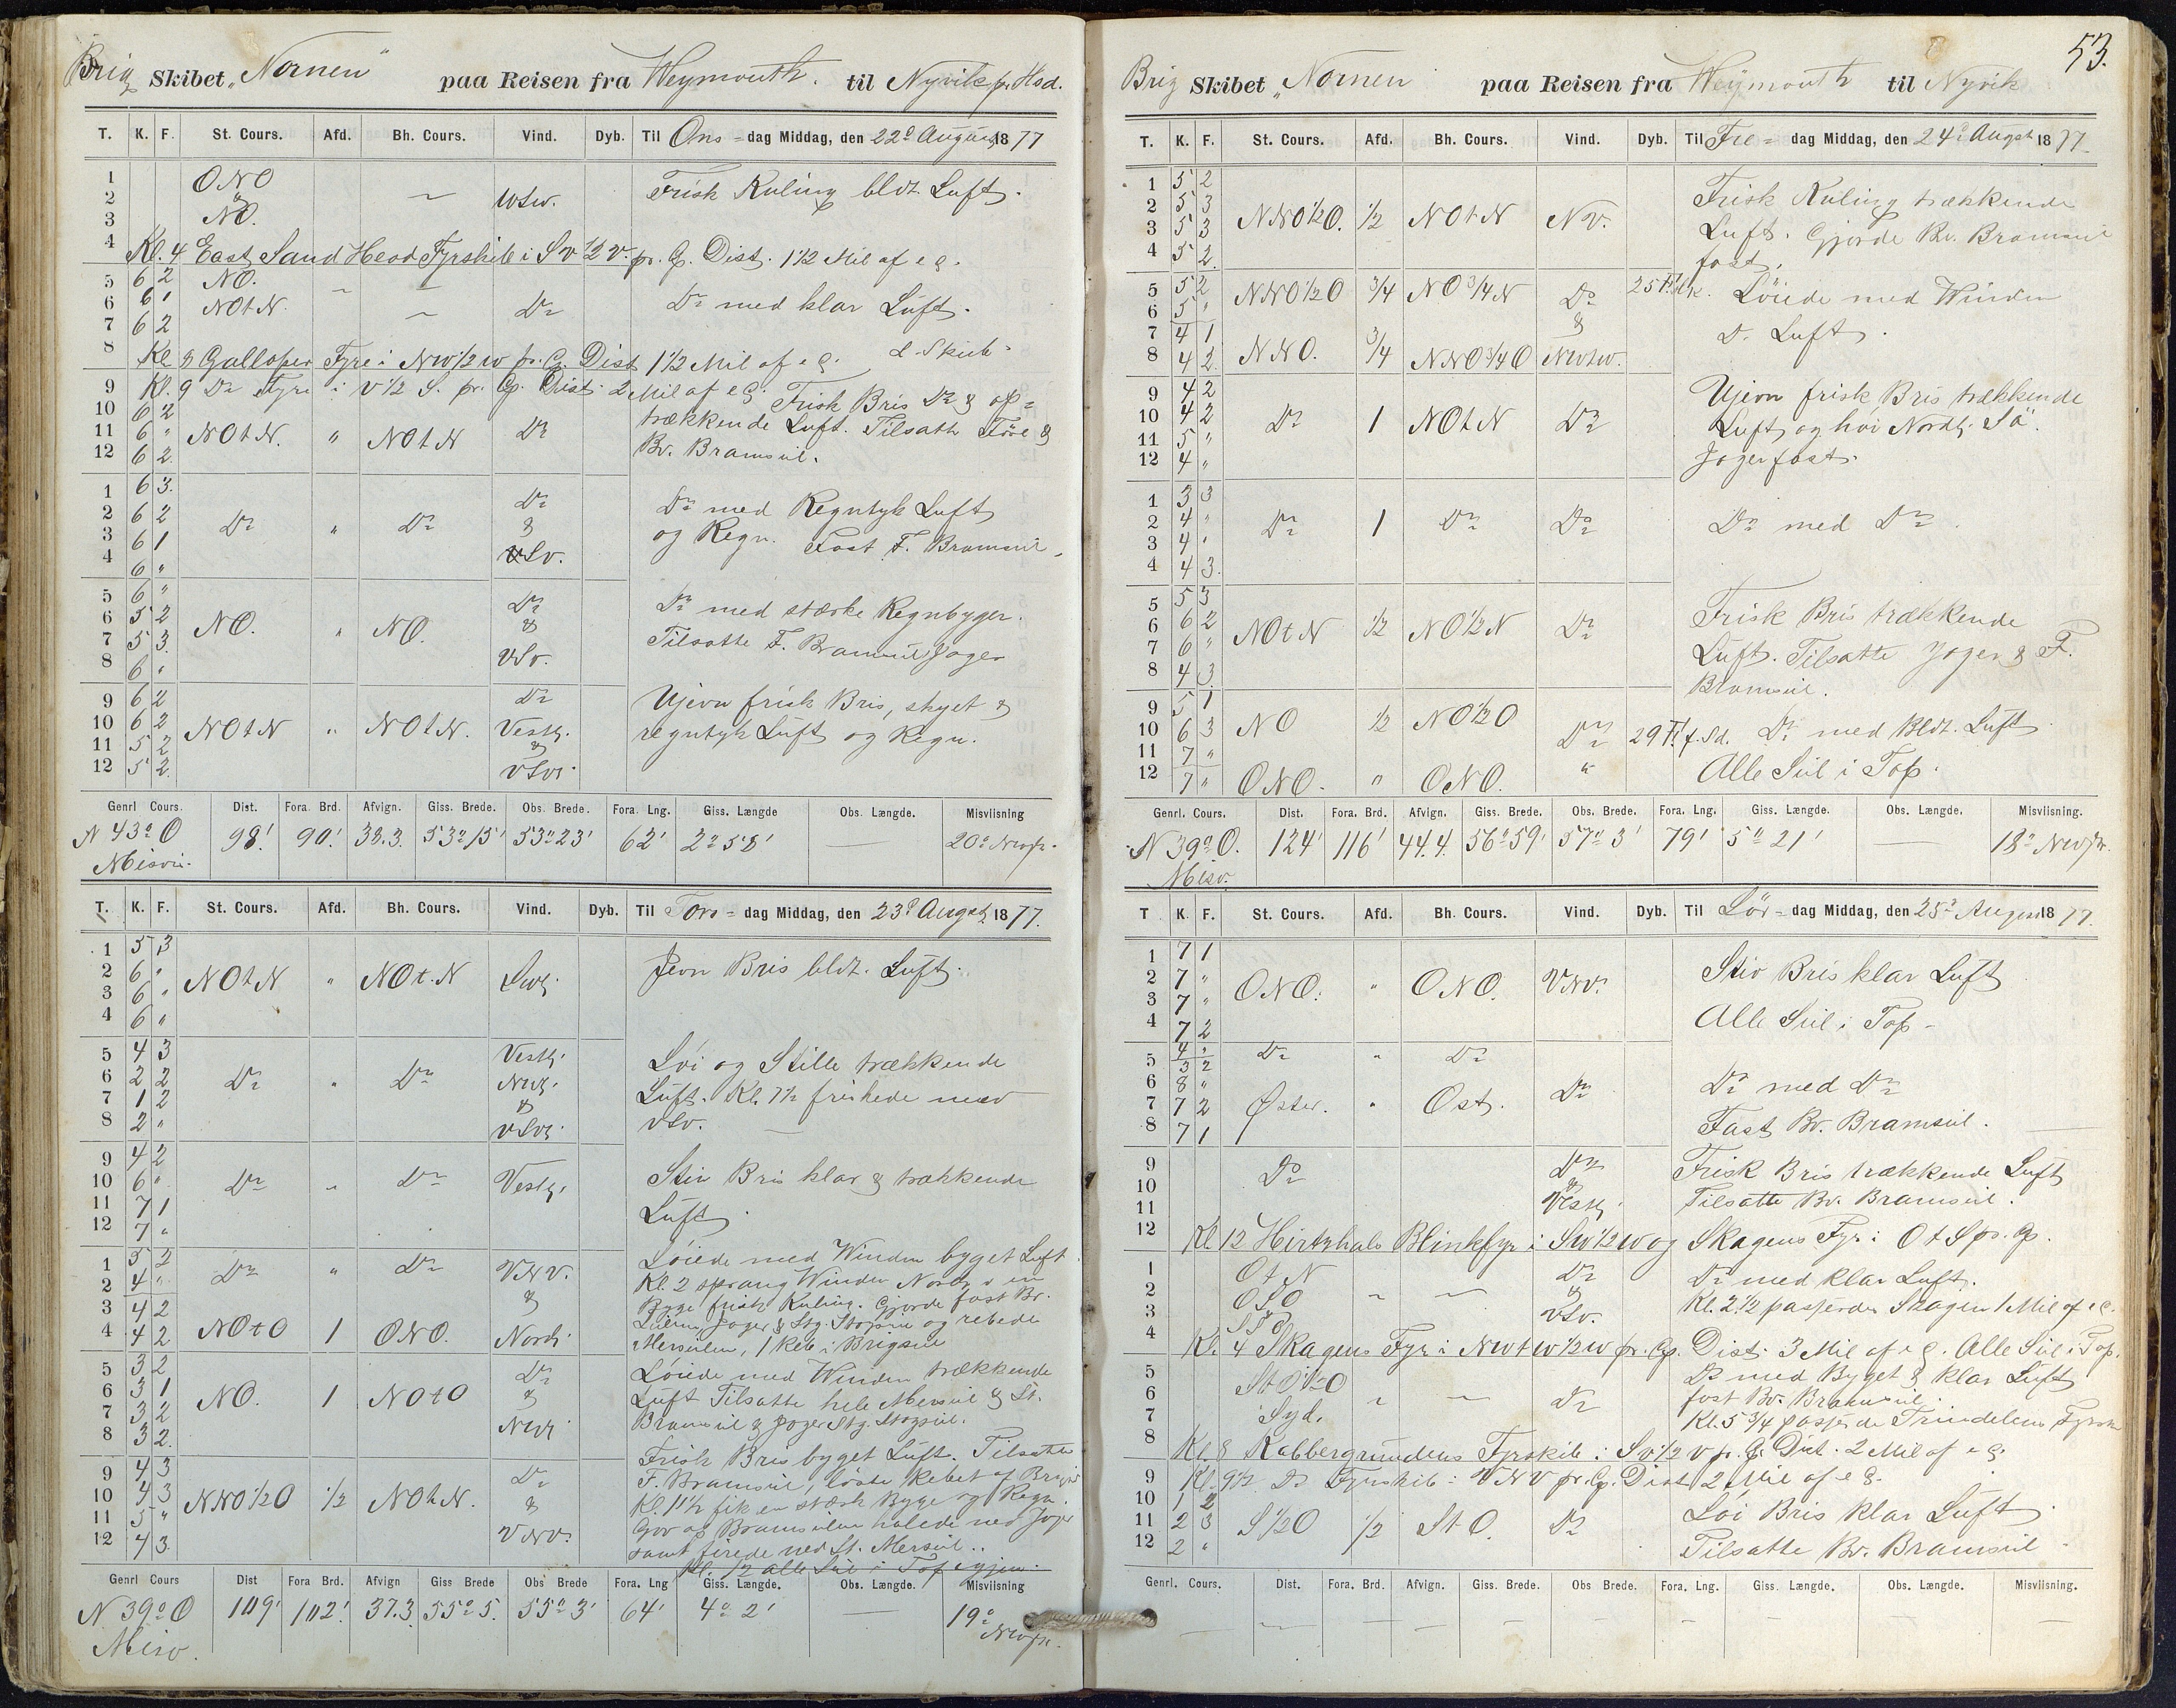 Brig Skibet „Nornen" paa Reisen fra Weymouth. til Nyvik pr. Hsd.
T. K. F. St. Cours. Afd. Bh. Cours. Vind. Dyb. Til Ons-dag Middag, den 22d August 1877
1 ONO
2 & — WSW. Frisk Kuling bldt. Luft.
3 NO.
4 Kl. 4 East Sand Head Fyrskib i SV 1/2 V. pr. Cp. Dist. 1 1/2 Mil af e G.
5 6 2 NO. — —
6 6 1 NOtN. — Do Do med klar Luft.
7 6 2
8 Kl. 8 Galloper Fyre i NW 1/2 W pr. Cp. Dist 1 1/2 Mil af e G.
9 Kl. 9 Do Fyre i V 1/2 S. pr. Cp. Dist. 2 Mil af e G. Frisk Bris Do & op=
10 6 2 trækkende Luft. Tilsatte Före &
11 6 " NOtN. " NOtN Do Bv. Bramseil.
12 6 2
1 6 3. Do
2 6 2 Do " Do & Do med Regntyk Luft
3 6 1 VSv. og Regn. Fast F. Bramseil.
4 6 "
5 6 " Do
6 5 2 NO. " NO. & Do med stærke Regnbyger.
7 5 3. VSv. Tilsatte F. Bramseil Jager
8 6 "
9 6 2 Do Ujevn frisk Bris, skyet &
10 6 2 NOtN " NOtN. Vestl. regntyk Luft og Regn.
11 5 2 &
12 5 2. VSVl.
Genrl Cours. Dist. Fora. Brd. Afvign. Giss. Brede. Obs. Brede. Fora. Lng. Giss. Længde Obs. Længde. Misviisning
N 43° O 98' 90' 38.3. 53° 15' 53° 23' 62' 2° 58' — 20° NWpr.
Misvis.
T. K. F. St. Cours. Afd. Bh. Cours. Vind. Dyb. Til Tors-dag Middag, den 23d Augst 1877.
1 5 3
2 6 " NOtN " NOt.N Svl. Jevn Bris bldt. Luft.
3 6 "
4 6 "
5 4 3 Vestl. Löi og Stille trækkende
6 2 2 Do " Do NVl. Luft. Kl. 7 1/2 friskede med
7 1 2 & VSv.
8 2 " VSVl.
9 4 2
10 6 " Do " Do Vestl. Stiv Bris klar & trækkende
11 7 1 Luft.
12 7 "
1 5 2 Do " Do VNV. Löiede med Winden byget Luft
2 4 " & Kl. 2 sprang Winden Nordl. i en
3 4 2 Byge frisk Kuling. Gjorde fast Bv.
4 4 2 NOtO 1 ONO. Nordl. Jager & Stg. Stagseil og rebede
Merseilen, 1 Reb i Brigseil
5 3 2 Do Löiede med Winden trækkende
6 3 1 NO. 1 NOtO & Luft Tilsatte hele Merseil & St.
7 3 2 NVl. Bramseil & Jager Stg. Stagseil.
8 3 2.
9 4 3 Do Frisk Bris byget Luft. Tilsatte
10 4 3 NNO 1/2 O 1/2 NOtN. & F. Bramseil, löste Rebet af Brigseil
11 5 " VNV. Kl. 11 1/2 fik en stærk Byge og Regn.
12 4 3. Gav op Bramseilene halede ned Jager
samt firede ned St. Merseil..
Kl. 12 alle Seil i Top igjen.
Genrl Cours Dist Fora Brd. Afvign Giss Brede Obs Brede Fora. Lng Giss. Længde. Obs. Længde. Misviisning
N 39° O 109' 102' 37.3 55° 5. 55° 3' 64' 4° 2' — 19° NWpr.
Misv.
53.
Brig Skibet „Nornen paa Reisen fra Weymouth til Nyvik
T. K. F. St. Cours. Afd. Bh. Cours. Vind. Dyb. Til Fre-dag Middag, den 24d Augst 1877.
1 5 2 Frisk Kuling trækkende
2 5 3 NNO 1/2 O. 1/2 NOtN NV. Luft. Gjorde Bv. Bramseil
3 5 3 fast.
4 5 2.
5 5 2 NNO 1/2 O 3/4 NO 3/4 N Do 25 F. Löiede med Winden
6 5 " & Do Luft.
7 4 1
8 4 2 NNO. 3/4 NNO 3/4 O NWtW.
9 4 2 Ujevn frisk Bris trækkende
10 4 2 Do 1 NOtN Do Luft og høi Nordl. Sö.
11 5 " Jager fast.
12 4 "
1 3 3
2 4 " Do 1 Do Do Do med Do
3 4 "
4 4 3.
5 5 3 Frisk Bris trækkende
6 6 2 NOtN 1/2 NO 1/2 N Do Luft. Tilsatte Jager & F.
7 6 " Bramseil.
8 4 3
9 5 1
10 6 3 NO 1/2 NO 1/2 O Do 29 F. f. Sd. Do med Bldt. Luft
11 7 " Alle Seil i Top.
12 7 " ONO. " ONO. "
Genrl. Cours. Dist. Fora. Brd. Afvign. Giss. Brede. Obs. Brede. Fora. Lng. Giss. Længde. Obs. Længde. Misviisning.
N 39° O. 124' 116' 44.4. 56° 59' 57° 3' 79' 5° 21' — 18° NWpr.
Misv.
T K. F. St. Cours. Afd. Bh. Cours. Vind. Dyb. Til Lör-dag Middag, den 25d August 1877.
1 7 1
2 7 " ONO. " ONO. VNV. Stiv Bris klar Luft
3 7 " Alle Seil i Top-
4 7 2
5 4 " Do " Do
3 2
6 8 " Do Do med Do
7 7 2 Øster. " Ost. Fast Bv. Bramseil.
8 7 1
9 Do Do Frisk Bris trækkende Luft
10 & Tilsatte Bv. Bramseil.
11 Vestl.
12 Kl. 12 Hirtzhals Blinkfyr i SW 1/2 W og Skagens Fyr i OtS pr. Cp.
1 OtN Do Do med klar Luft.
2 OSO — — & Kl. 2 1/2 passerede Skagen 1 Mil af e G.
3 SSO VSv.
4 Kl. 4 Skagens Fyr i NWtW 1/2 W pr. Cp. Dist. 3 Mil af e G. Alle Seil i Top.
5 StO 1/2 O Do med Byget & klar Luft
6 " — Do fast Bv. Bramseil
7 Syd. Kl. 5 3/4 passerede Trindelens Fyrsk
8 Kl. 8 Kobbergrundens Fyrskib i SV 1/2 V pr. Cp. Dist. 2 Mil af e G.
9 Kl. 9 1/2 Do Fyrskib i VNV pr. Cp. Dist 2 Mil af e G.
10 1 2 Löi Bris klar Luft
11 2 3 S 1/2 O 1/2 StO. Do Tilsatte Bv. Bramseil
12 2 "
Genrl. Cours. Dist. Fora. Brd. Afvign. Giss. Brede. Obs Brede. Fora. Lng. Giss. Længde. Obs. Længde. Misviisning.
— — — — — — — — — —